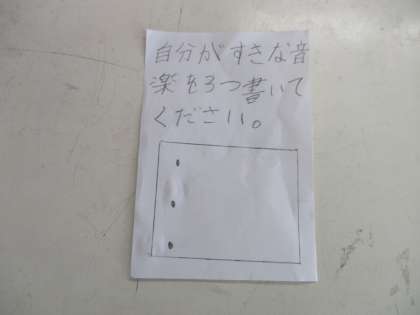 自分がすきな音
楽を3つ書いて
ください。